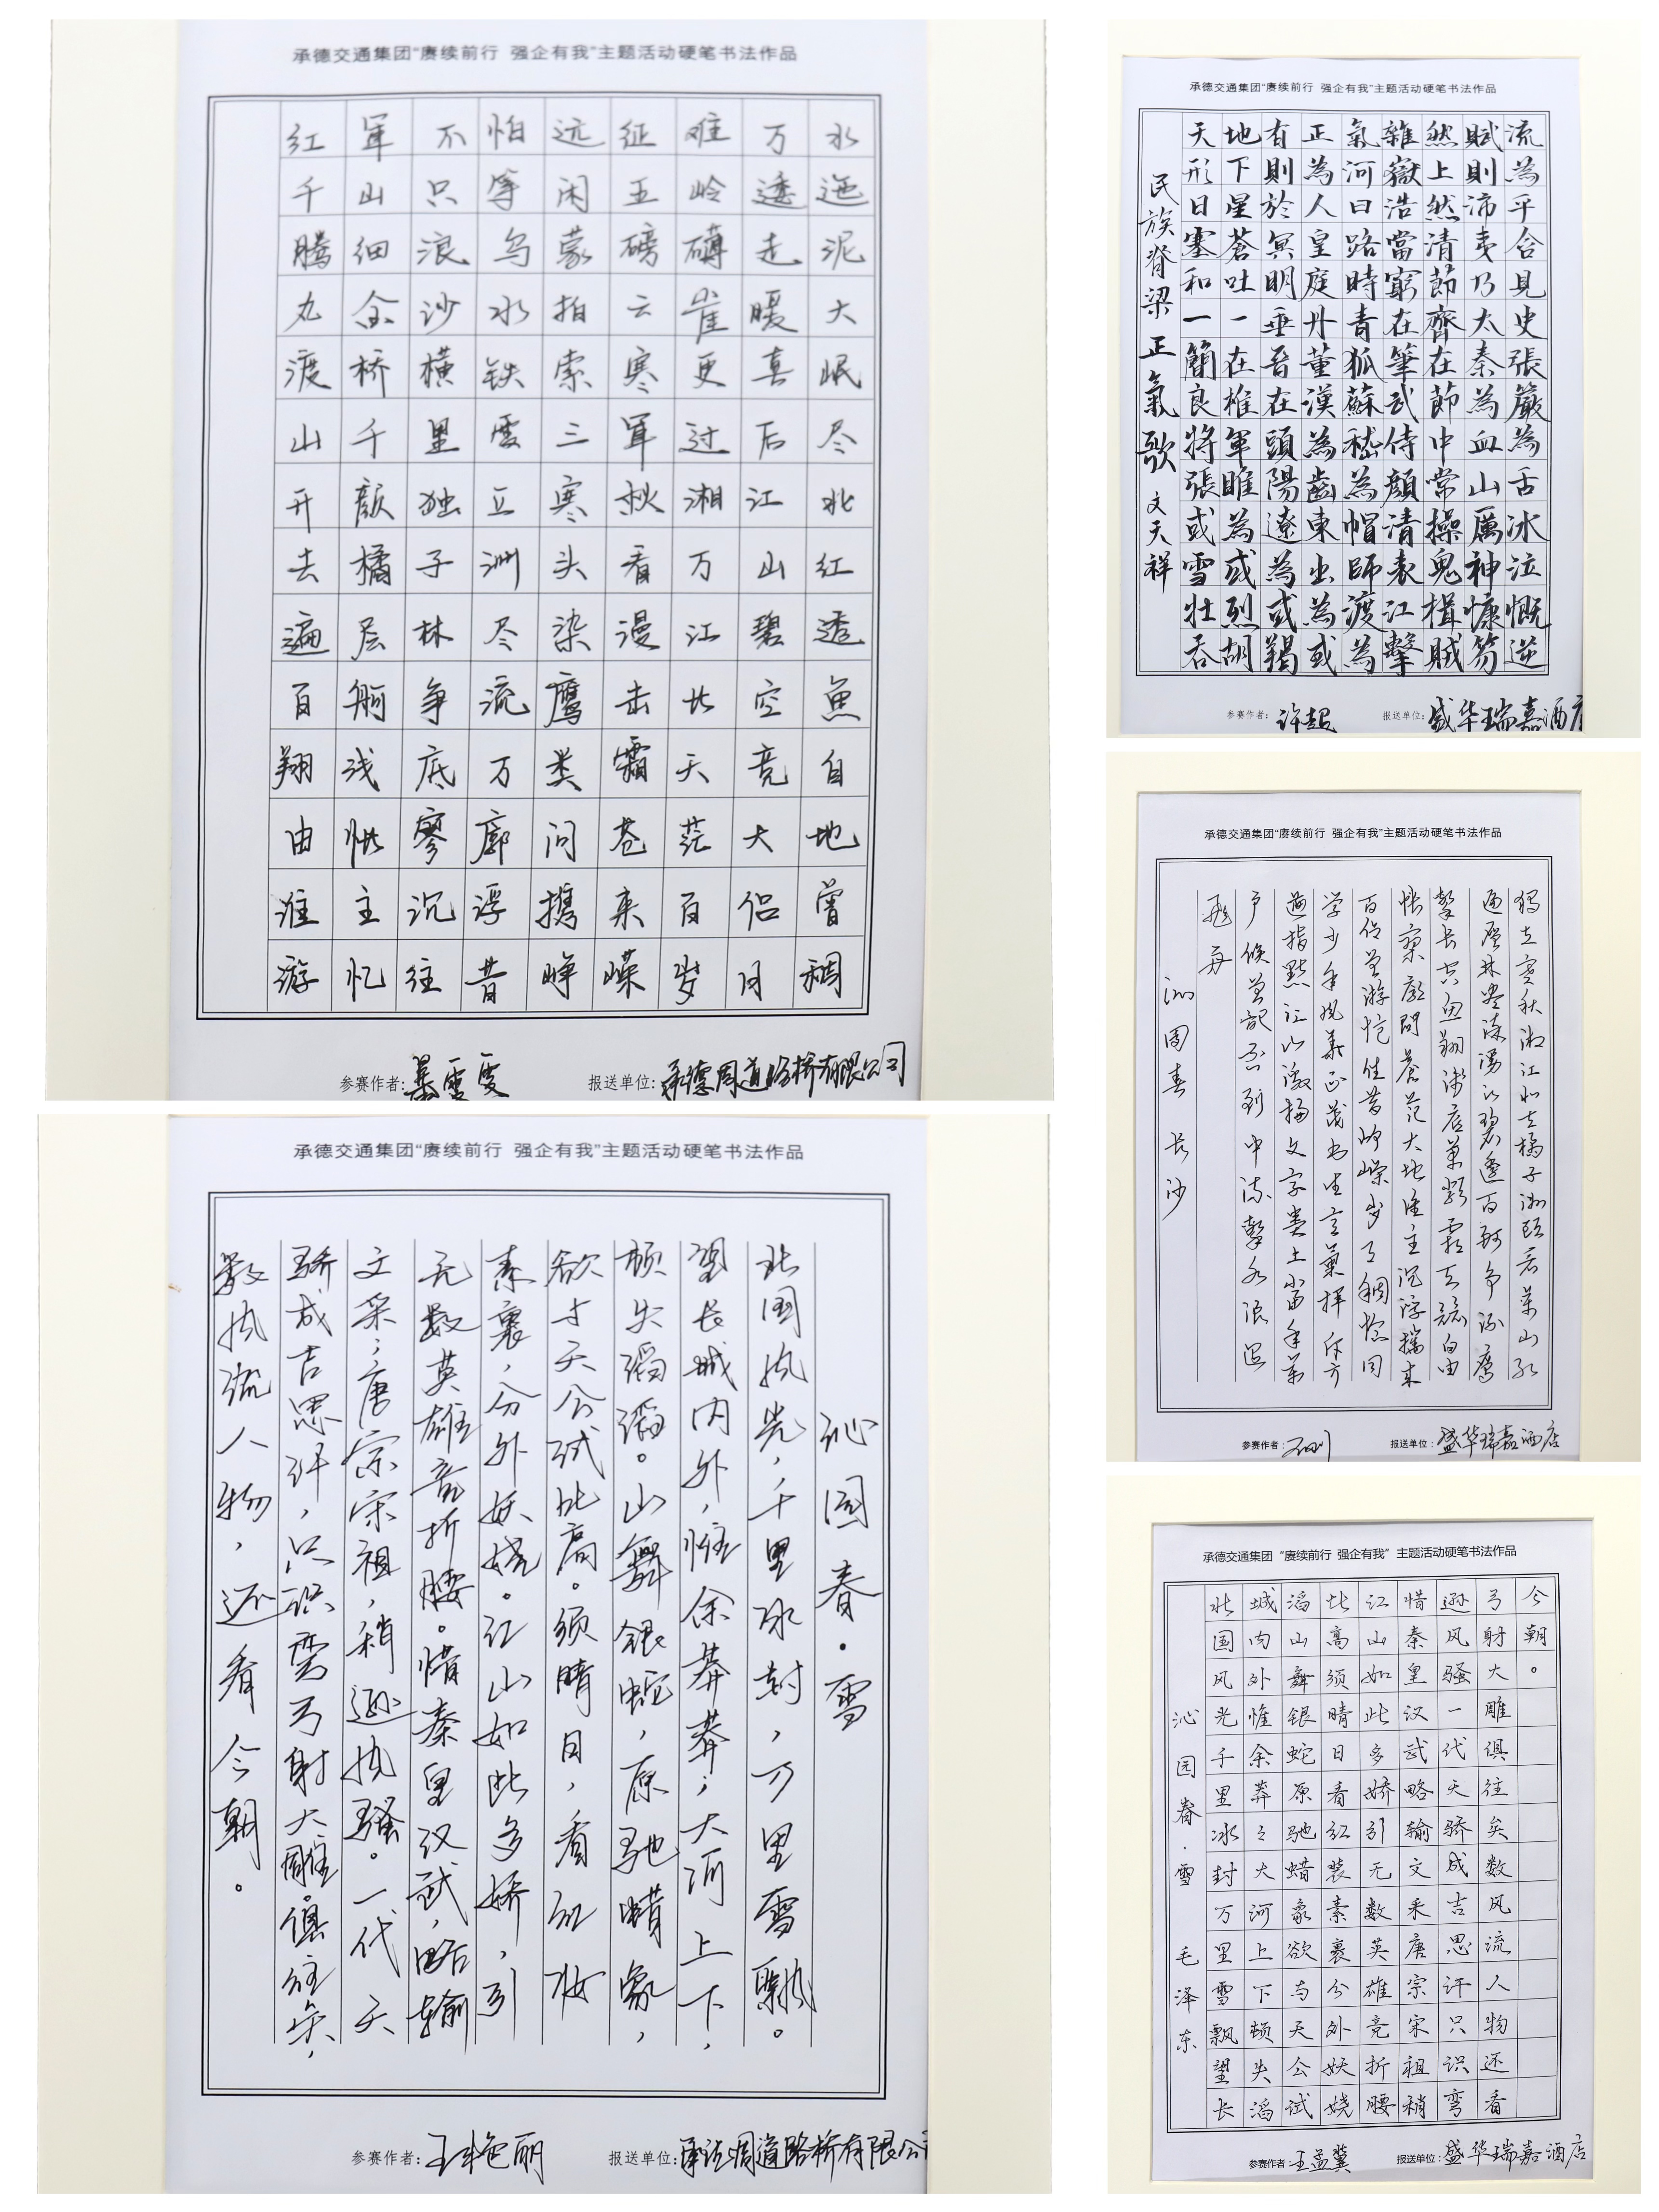 承德交通集团“赓续前行 强企有我”主题活动硬笔书法作品
红军不怕远征难万水
千山只等闲五岭逶迤
腾细浪乌蒙磅礴走泥
丸金沙水拍云崖暖大
渡桥横铁索寒更喜岷
山千里雪三军过后尽
开颜独立寒秋湘江北
去橘子洲头看万山红
遍层林尽染漫江碧透
百舸争流鹰击长空鱼
翔浅底万类霜天竞自
由怅寥廓问苍茫大地
谁主沉浮携来百侣曾
游忆往昔峥嵘岁月稠
参赛作者:
报送单位:承德周道路桥有限公司
承德交通集团“赓续前行 强企有我”主题活动硬笔书法作品
民族脊梁正氣歌 文天祥
天地有正氣雜然賦流
形下則為河嶽上則為
日星於人曰浩然沛乎
塞蒼冥皇路當清夷含
和吐明庭時窮節乃見
一一垂丹青在齊太史
簡在晉董狐筆在秦張
良椎在漢蘇武節為嚴
將軍頭為嵇侍中血為
張睢陽齒為顏常山舌
或為遼東帽清操厲冰
雪或為出師表鬼神泣
壯烈或為渡江楫慷慨
吞胡羯或為擊賊笏逆
参赛作者: 许超
报送单位: 盛华瑞嘉酒店
承德交通集团“赓续前行 强企有我”主题活动硬笔书法作品
独立寒秋湘江北去橘子洲头看万山红
遍层林尽染漫江碧透百舸争流鹰
擊长空鱼翔浅底万類霜天競自由
怅寥廓問苍茫大地谁主沉浮携来
百侣曾游忆往昔峥嵘岁月稠恰同
学少年风华正茂书生意气挥斥方
遒指點江山激扬文字粪土当年万
户侯曾记否到中流擊水浪遏
飛舟
沁园春 长沙
参赛作者:
报送单位:盛华瑞嘉酒店
承德交通集团“赓续前行 强企有我”主题活动硬笔书法作品
沁园春·雪
北国风光,千里冰封,万里雪飘。
望长城内外,惟余莽莽;大河上下,
顿失滔滔。山舞银蛇,原驰蜡象,
欲与天公试比高。须晴日,看红妆
素裹,分外妖娆。江山如此多娇,引
无数英雄竞折腰。惜秦皇汉武,略输
文采;唐宗宋祖,稍逊风骚。一代天
骄成吉思汗,只识弯弓射大雕。俱往矣,
数风流人物,还看今朝。
参赛作者:王艳丽
报送单位:承德周道路桥有限公司
承德交通集团 “赓续前行 强企有我” 主题活动硬笔书法作品
沁园春·雪 毛泽东
北国风光千里冰封万里雪飘望长
城内外惟余莽々大河上下顿失滔
滔山舞银蛇原驰蜡象欲与天公试
比高须晴日看红装素裹分外妖娆
江山如此多娇引无数英雄竞折腰
惜秦皇汉武略输文采唐宗宋祖稍
逊风骚一代天骄成吉思汗只识弯
弓射大雕俱往矣数风流人物还看
今朝。
参赛作者 王孟冀
报送单位: 盛华瑞嘉酒店